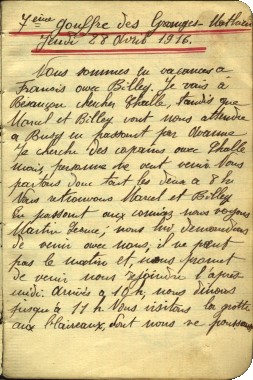 7ème gouffre des Granges-Mathieu
Jeudi 28 Avril 1916.
Nous sommes en vacances à
Francis avec Billey. Je vais à
Besançon chercher Thalle, tandis que
Marcel et Billey vont nous attendre
à Busy en passant par
Je cherche des copains avec Thalle
mais personne ne veut venir. Nous
partons donc tout les deux à 8 h
Nous retrouvons Marcel et Billey
En passant aux nous voyons
Martin ; nous lui demandons
de venir avec nous; il ne peut
pas le matin et, nous promet
de venir nous rejoindre l'après
midi. Arrivés à 10h, nous dînons
jusqu'à 11 h. Nous visitons la grotte
aux blaireaux, dont nous ne poussons